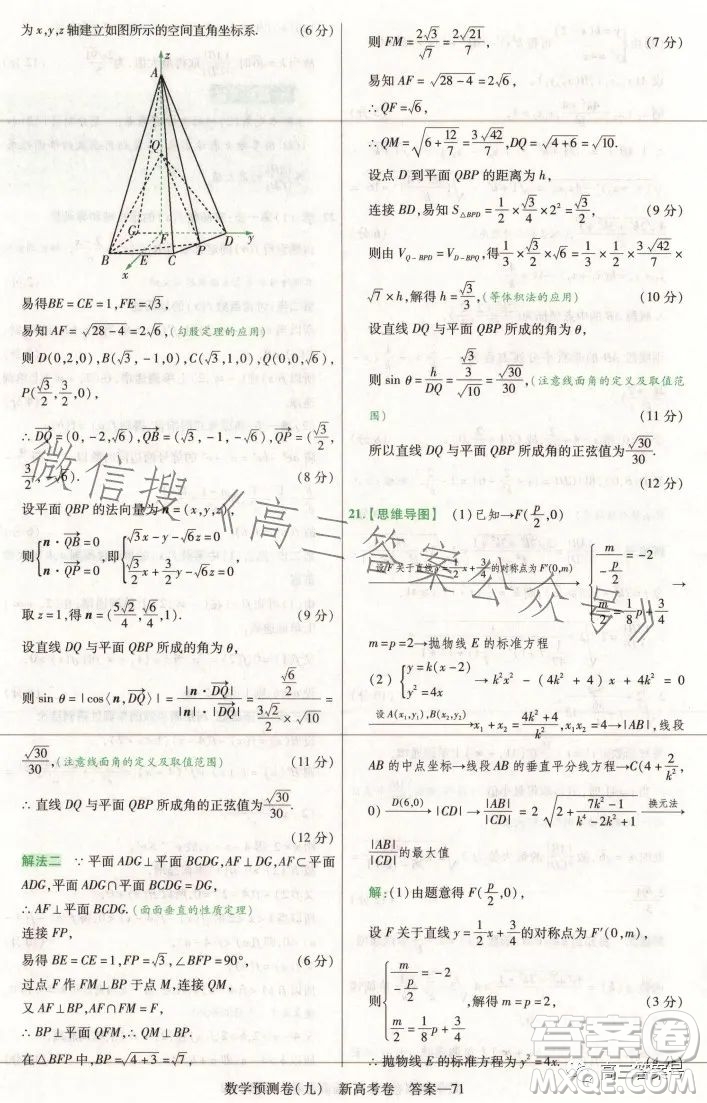 为x,y,z轴建立如图所示的空间直角坐标系. (6分)
z
A
Q
G
F
D
y
P
B
E
C
x
易得BE=CE=1,FE=√3,
易知AF=√(28-4)=2√6,(勾股定理的应用)
则D(0,2,0),B(√3,-1,0),C(√3,1,0),Q(0,0,√6),
P(√3/2,3/2,0),
∴DQ→=(0,-2,√6),QB→=(√3,-1,-√6),QP→=(√3/2,
3/2,-√6). (8分)
设平面QBP的法向量为n=(x,y,z),
则{n·QB→=0,n·QP→=0,即{√3x-y-√6z=0,√3/2x+3/2y-√6z=0,
取z=1,得n=(5√2/4,√6/4,1). (9分)
设直线DQ与平面QBP所成的角为θ,
则sin θ=|cos⟨n,DQ→⟩|=|n·DQ→|/|n|·|DQ→|=(√6/2)/(3√2/2×√10)=
√30/30,(注意线面角的定义及取值范围) (11分)
∴直线DQ与平面QBP所成角的正弦值为√30/30.
(12分)
解法二 ∵平面ADG⊥平面BCDG,AF⊥DG,AF⊂平面
ADG,平面ADG∩平面BCDG=DG,
∴AF⊥平面BCDG.(面面垂直的性质定理)
连接FP,
易得BE=CE=1,FP=√3,∠BFP=90°, (6分)
过点F作FM⊥BP于点M,连接QM,
又AF⊥BP,AF∩FM=F,
∴BP⊥平面QFM,∴QM⊥BP.
在△BFP中,BP=√(4+3)=√7,
则FM=2√3/√7=2√21/7, (7分)
易知AF=√(28-4)=2√6,
∴QF=√6,
∴QM=√(6+12/7)=3√42/7,DQ=√(4+6)=√10.
设点D到平面QBP的距离为h,
连接BD,易知S△BPD=1/2×√3/4×2²=√3/2, (9分)
则由V Q-BPD=V D-BPQ,得1/3×√3/2×√6=1/3×1/2×3√42/7×
√7×h,解得h=√3/3,(等体积法的应用) (10分)
设直线DQ与平面QBP所成的角为θ,
则sin θ=h/DQ=(√3/3)/√10=√30/30,(注意线面角的定义及取值范
围) (11分)
所以直线DQ与平面QBP所成角的正弦值为√30/30.
(12分)
21.【思维导图】 (1)已知→F(p/2,0)
设F关于直线y=1/2x+3/4的对称点为F′(0,m)→{m/(-p/2)=-2,m/2=1/8p+3/4→
m=p=2→抛物线E的标准方程
(2){y=k(x-2),y²=4x→k²x²-(4k²+4)x+4k²=0
设A(x₁,y₁),B(x₂,y₂)→x₁+x₂=(4k²+4)/k²,x₁x₂=4→|AB|,线段
AB的中点坐标→线段AB的垂直平分线方程→C(4+2/k²,
0) D(6,0)→|CD|→|AB|/|CD|=2√(2+(7k²-1)/(k⁴-2k²+1)) 换元法→
|AB|/|CD|的最大值
解:(1)由题意得F(p/2,0),
设F关于直线y=1/2x+3/4的对称点为F′(0,m),
则{m/(-p/2)=-2,m/2=1/8p+3/4,解得m=p=2, (3分)
∴抛物线E的标准方程为y²=4x.
数学预测卷(九) 新高考卷 答案—71
微信搜《高三答案公众号》
答案圈
高三答案号